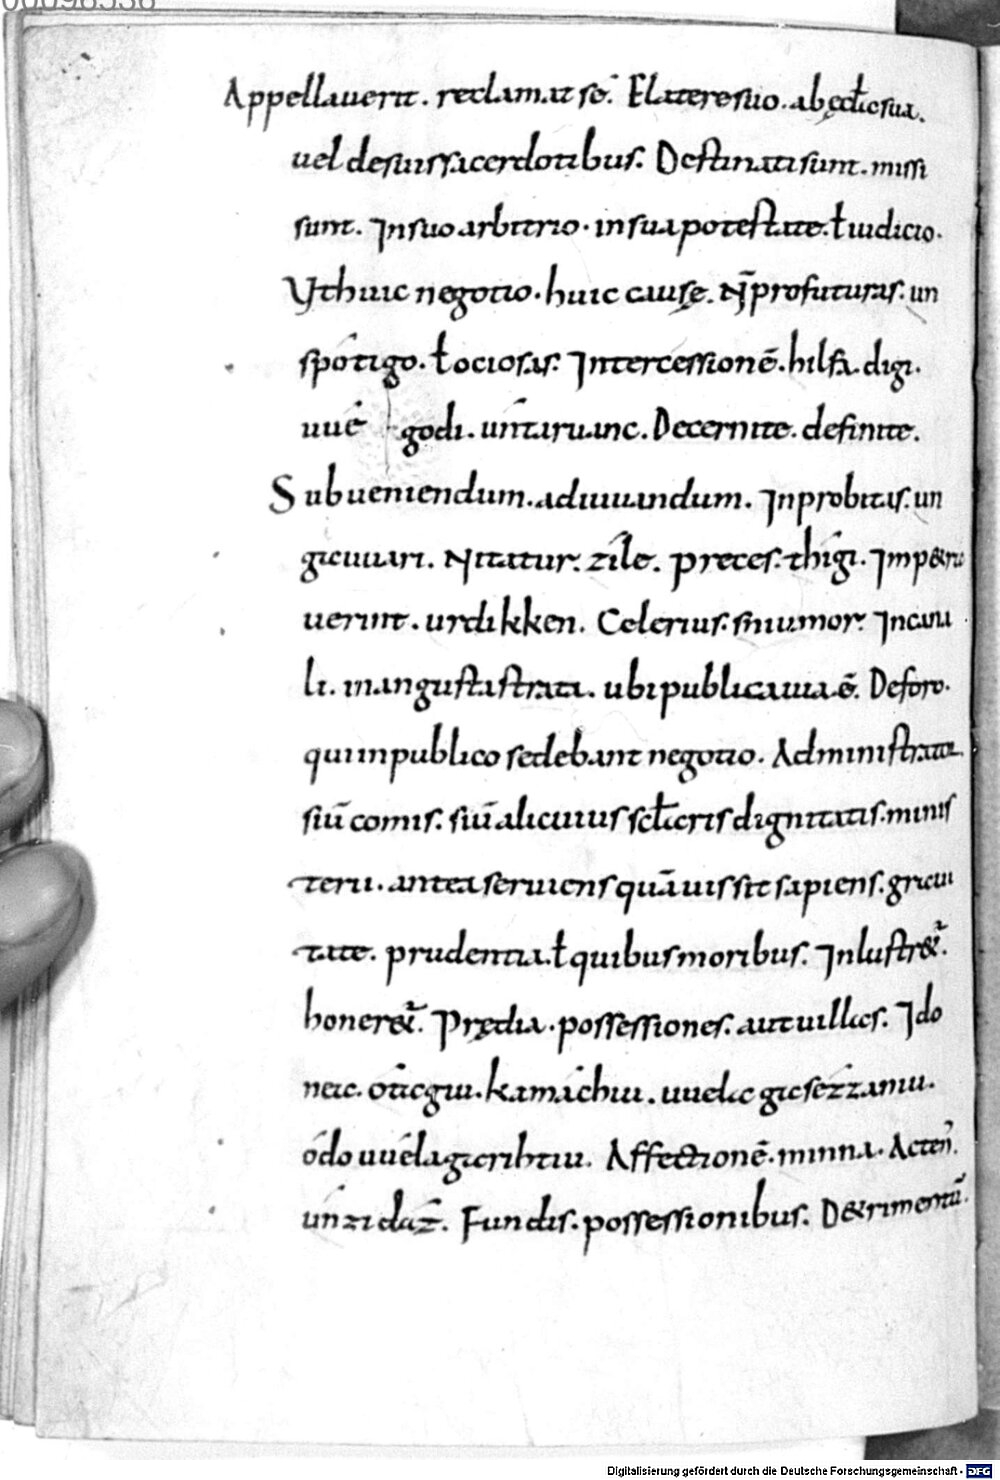 00098536
Appellauerit. reclamat se. Elatere suo. ab ęcclesia sua.
uel de suis sacerdotibus. Destinati sunt. missi
sunt. In suo arbitrio. in sua potestate. ł iudicio.
Vt huic negotio. huic causę. N̄ profuturas. un
spótigo. ł ociosas. Intercessionē. hilfa. digi.
uué godi. úntaruuanc. Decernite. definite.
Subueniendum. adiuuandum. Inprobitas. un
giuuari. Nitatur. zíle. preces. thígi. Imp&ra
uerint. urdikken. Celerius. sniumor. In caui
li. in angusta strata. ubi publica uia ē. De foro.
qui in publico sedebant negotio. Administrator
siū comis. siū alicuius scłaris dignitatis. minis
terii. antea seruiens quāuis sit sapiens. graui
tate. prudentia. ł quibus moribus. Inlustr&ur.
honer&ur. Prędia. possessiones. aut uillas. Ido
neac. ótagiu. kamáchiu. uuela gasézzamu.
ódo uuéla gerihtiu. Affectionē. minna. Acten̄.
únzi daz̄. Fundis. possessionibus. D&rimentū.
Digitalisierung gefördert durch die Deutsche Forschungsgemeinschaft - DFG